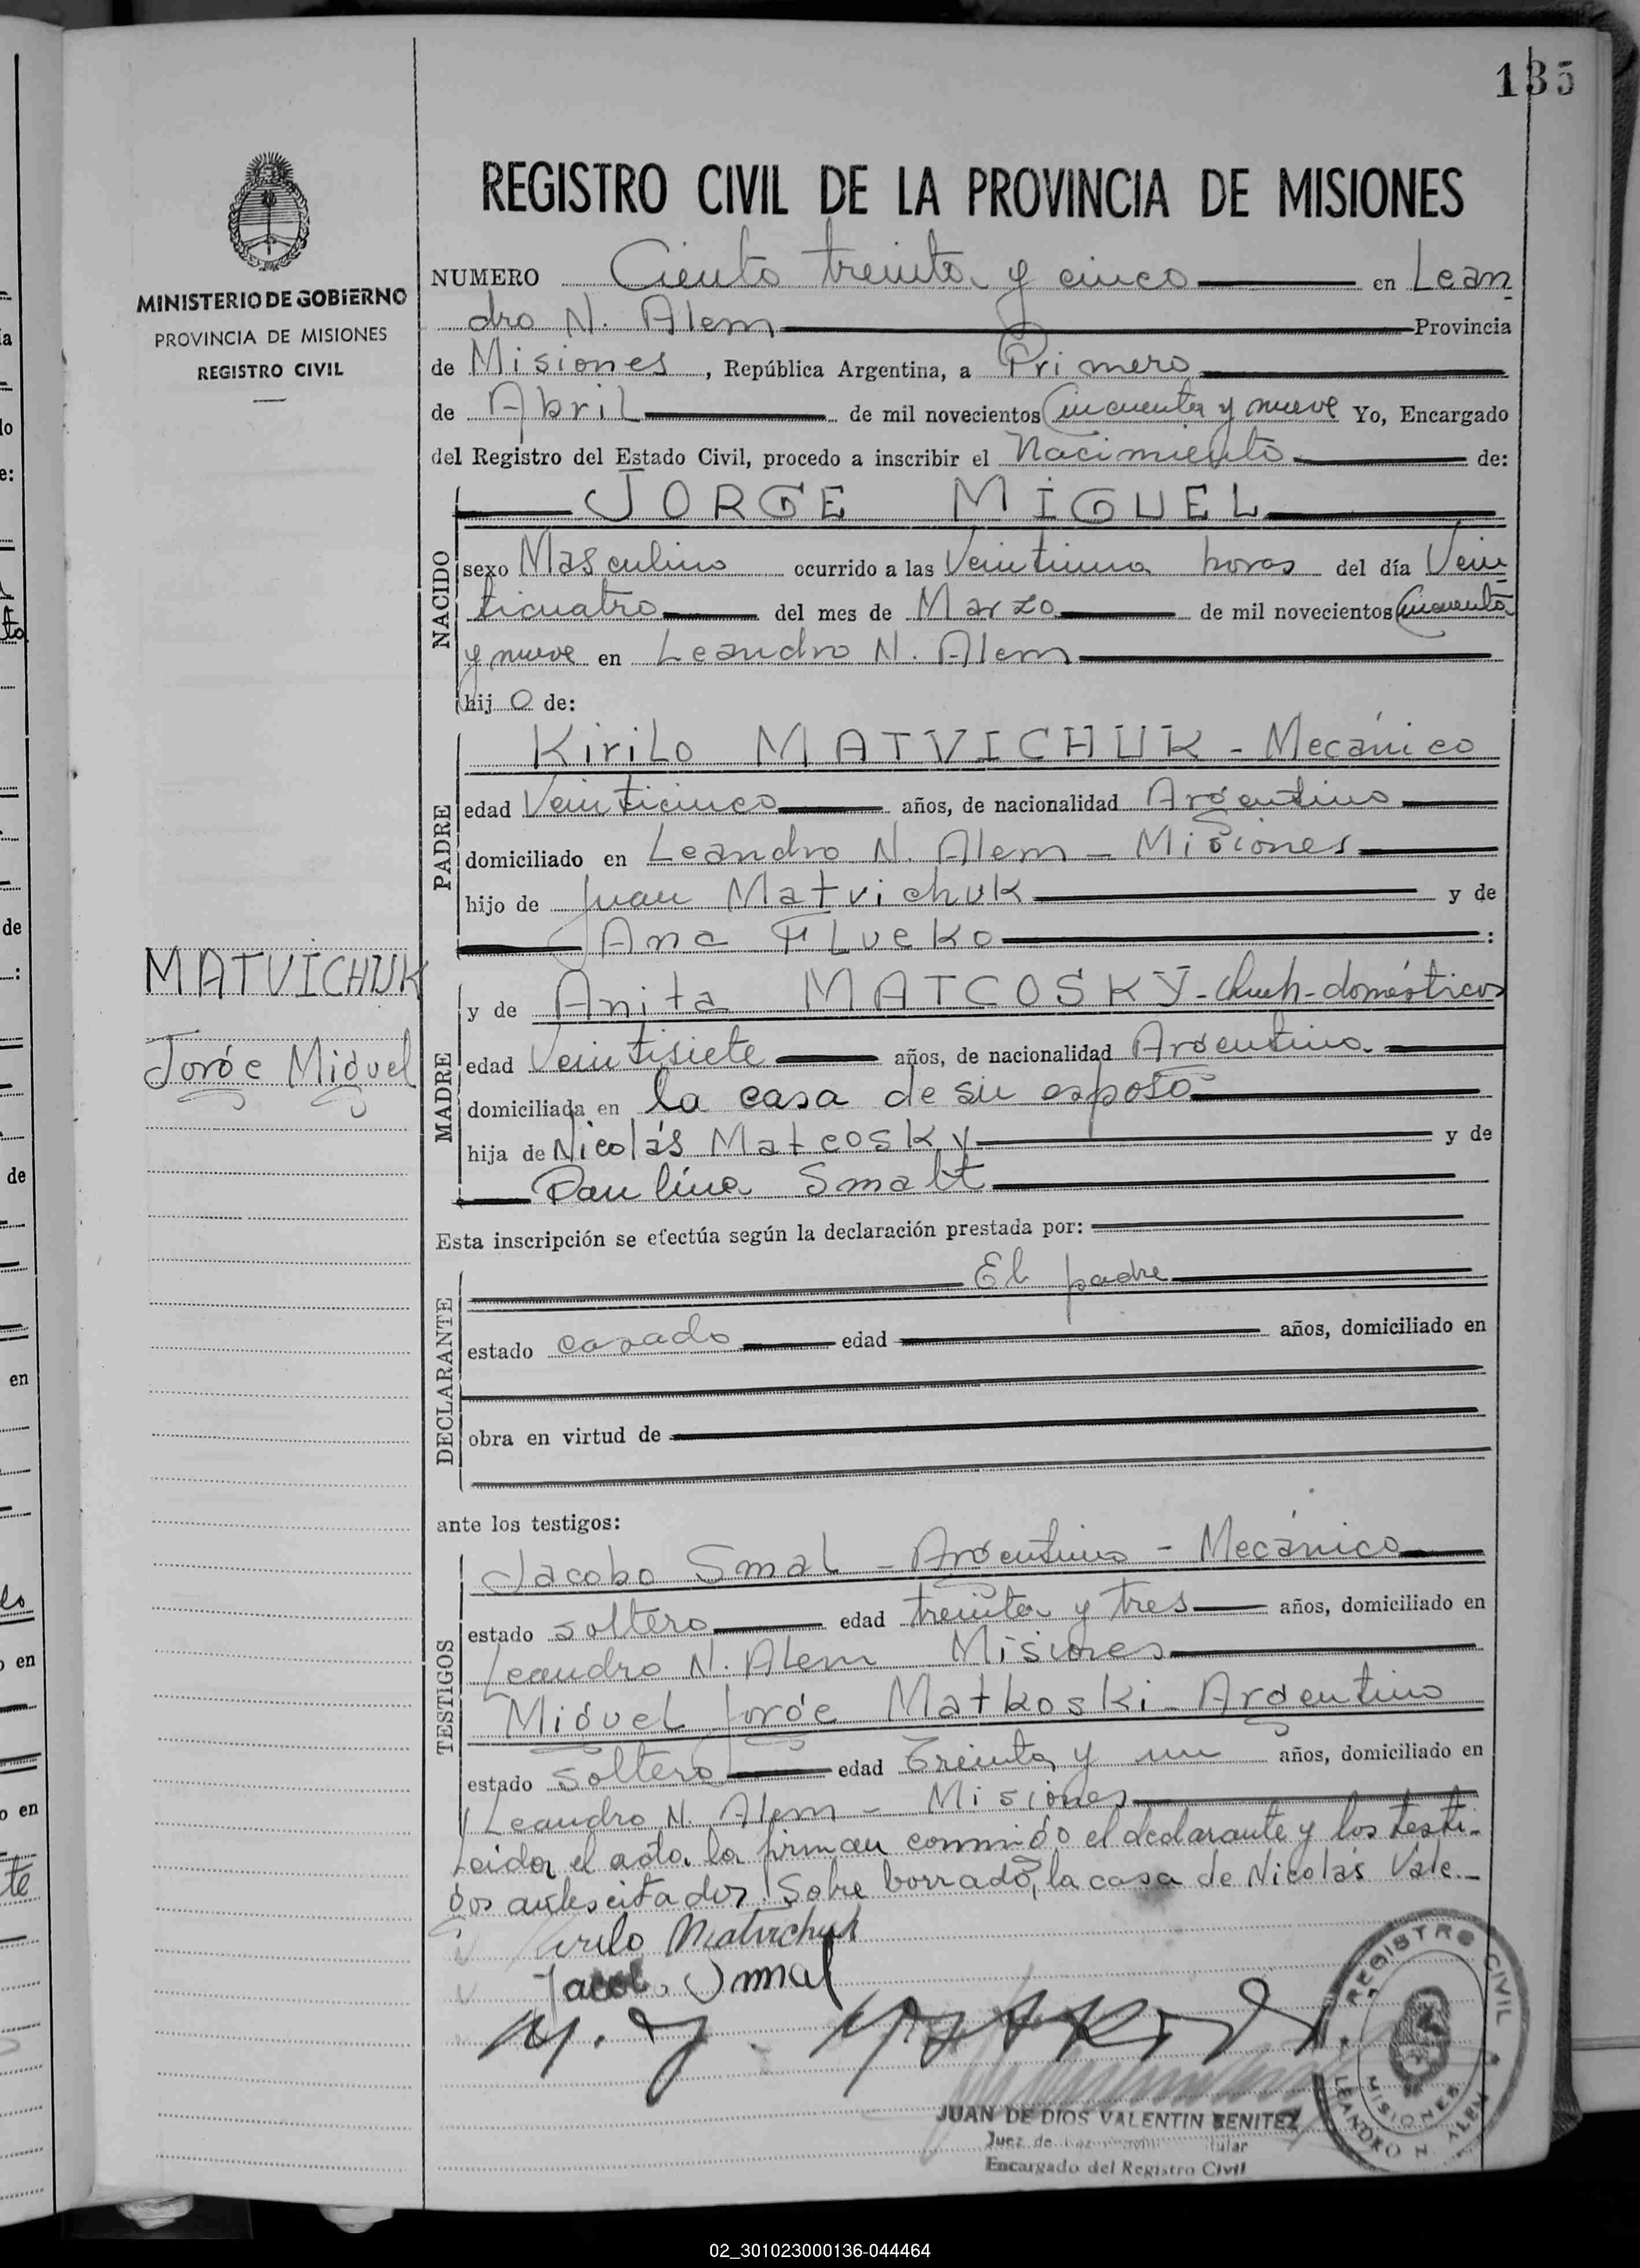 135
REGISTRO CIVIL DE LA PROVINCIA DE MISIONES
MINISTERIO DE GOBIERNO
PROVINCIA DE MISIONES
REGISTRO CIVIL
NUMERO Ciento treinta y cinco en Lean
dro N. Alem Provincia
de Misiones, República Argentina, a Primero
de Abril de mil novecientos Cincuenta y nueve Yo, Encargado
del Registro del Estado Civil, procedo a inscribir el Nacimiento de:
NACIDO
JORGE MIGUEL
sexo Masculino ocurrido a las Veintiuna horas del día Vein
ticuatro del mes de Marzo de mil novecientos Cincuenta
y nueve en Leandro N. Alem
hijo de:
PADRE
Kirilo MATVICHUK - Mecánico
edad Veinticinco años, de nacionalidad Argentino
domiciliado en Leandro N. Alem - Misiones
hijo de Juan Matvichuk y de
Ana Flueko :
MATVICHUK
Jorge Miguel
MADRE
y de Anita MATCOSKY - domésticos
edad Veintisiete años, de nacionalidad Argentina
domiciliada en la casa de su esposo
hija de Nicolás Matcosky y de
Paulina Smalt
Esta inscripción se efectúa según la declaración prestada por:
DECLARANTE
El padre
estado casado edad años, domiciliado en
obra en virtud de
ante los testigos:
TESTIGOS
Jacobo Smal - Argentino - Mecánico
estado soltero edad treinta y tres años, domiciliado en
Leandro N. Alem Misiones
Miguel Jorge Matkoski - Argentino
estado soltero edad Treinta y un años, domiciliado en
Leandro N. Alem - Misiones
Leida el acta la firman conmigo el declarante y los testi-
gos antes citados. Sobre borrado, la casa de Nicolás Vale
Kirilo Matvichuk
Jacobo Smal
M. J. Matkoski
JUAN DE DIOS VALENTIN BENITEZ
Juez de
Encargado del Registro Civil
REGISTRO CIVIL
MISIONES
LEANDRO N. ALEM
02_301023000136-044464